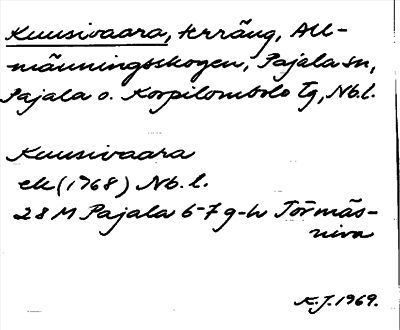 Kuusivaara, terräng, All-
männingsskogen, Pajala sn,
Pajala o. Korpilombolo tg, Nb.l.
Kuusivaara
ek (1768) Nb. l.
28 M Pajala 6-7 g-h Törmäs-
niva
K.J. 1969.